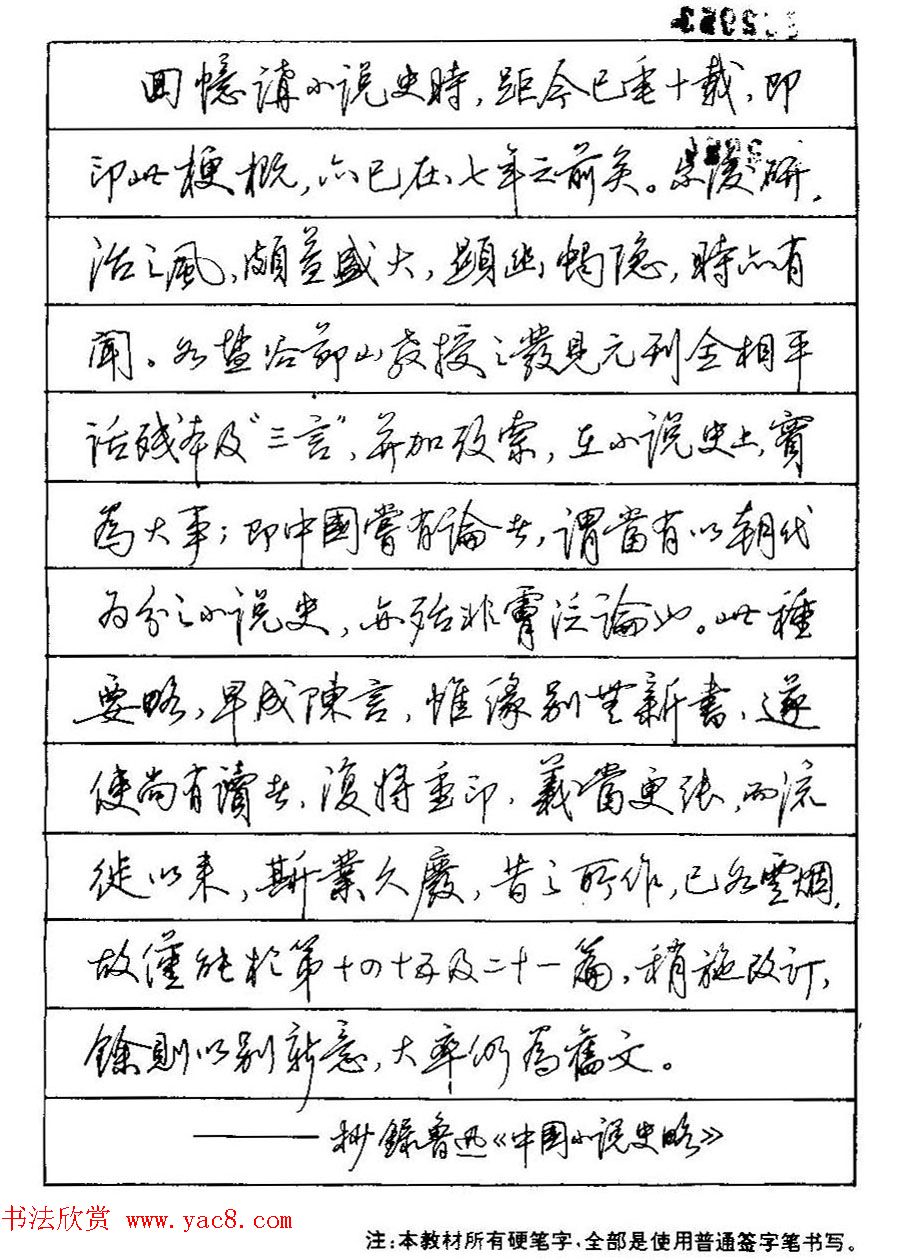 回憶講小说史時，距今已垂十載，即
印此梗概，亦已在七年之前矣。尔後研
治之風，頗益盛大，顯幽燭隐，時亦有
聞。如盐谷節山教授之發見元刊全相平
话残本及“三言”，并加攷索，在小说史上，實
為大事；即中國嘗有論者，謂當有以朝代
为分之小说史，亦殆非膚泛論也。此種
要略，早成陳言，惟緣别無新書，遂
使尚有讀者，復將重印，義當更张，而流
徙以来，斯業久廢，昔之所作，已如雲烟，
故僅能於第十四十五及二十一篇，稍施改订，
餘則以别新意，大率仍為舊文。
——抄錄魯迅《中国小说史略》
书法欣赏 www.yac8.com
注：本教材所有硬笔字，全部是使用普通签字笔书写。